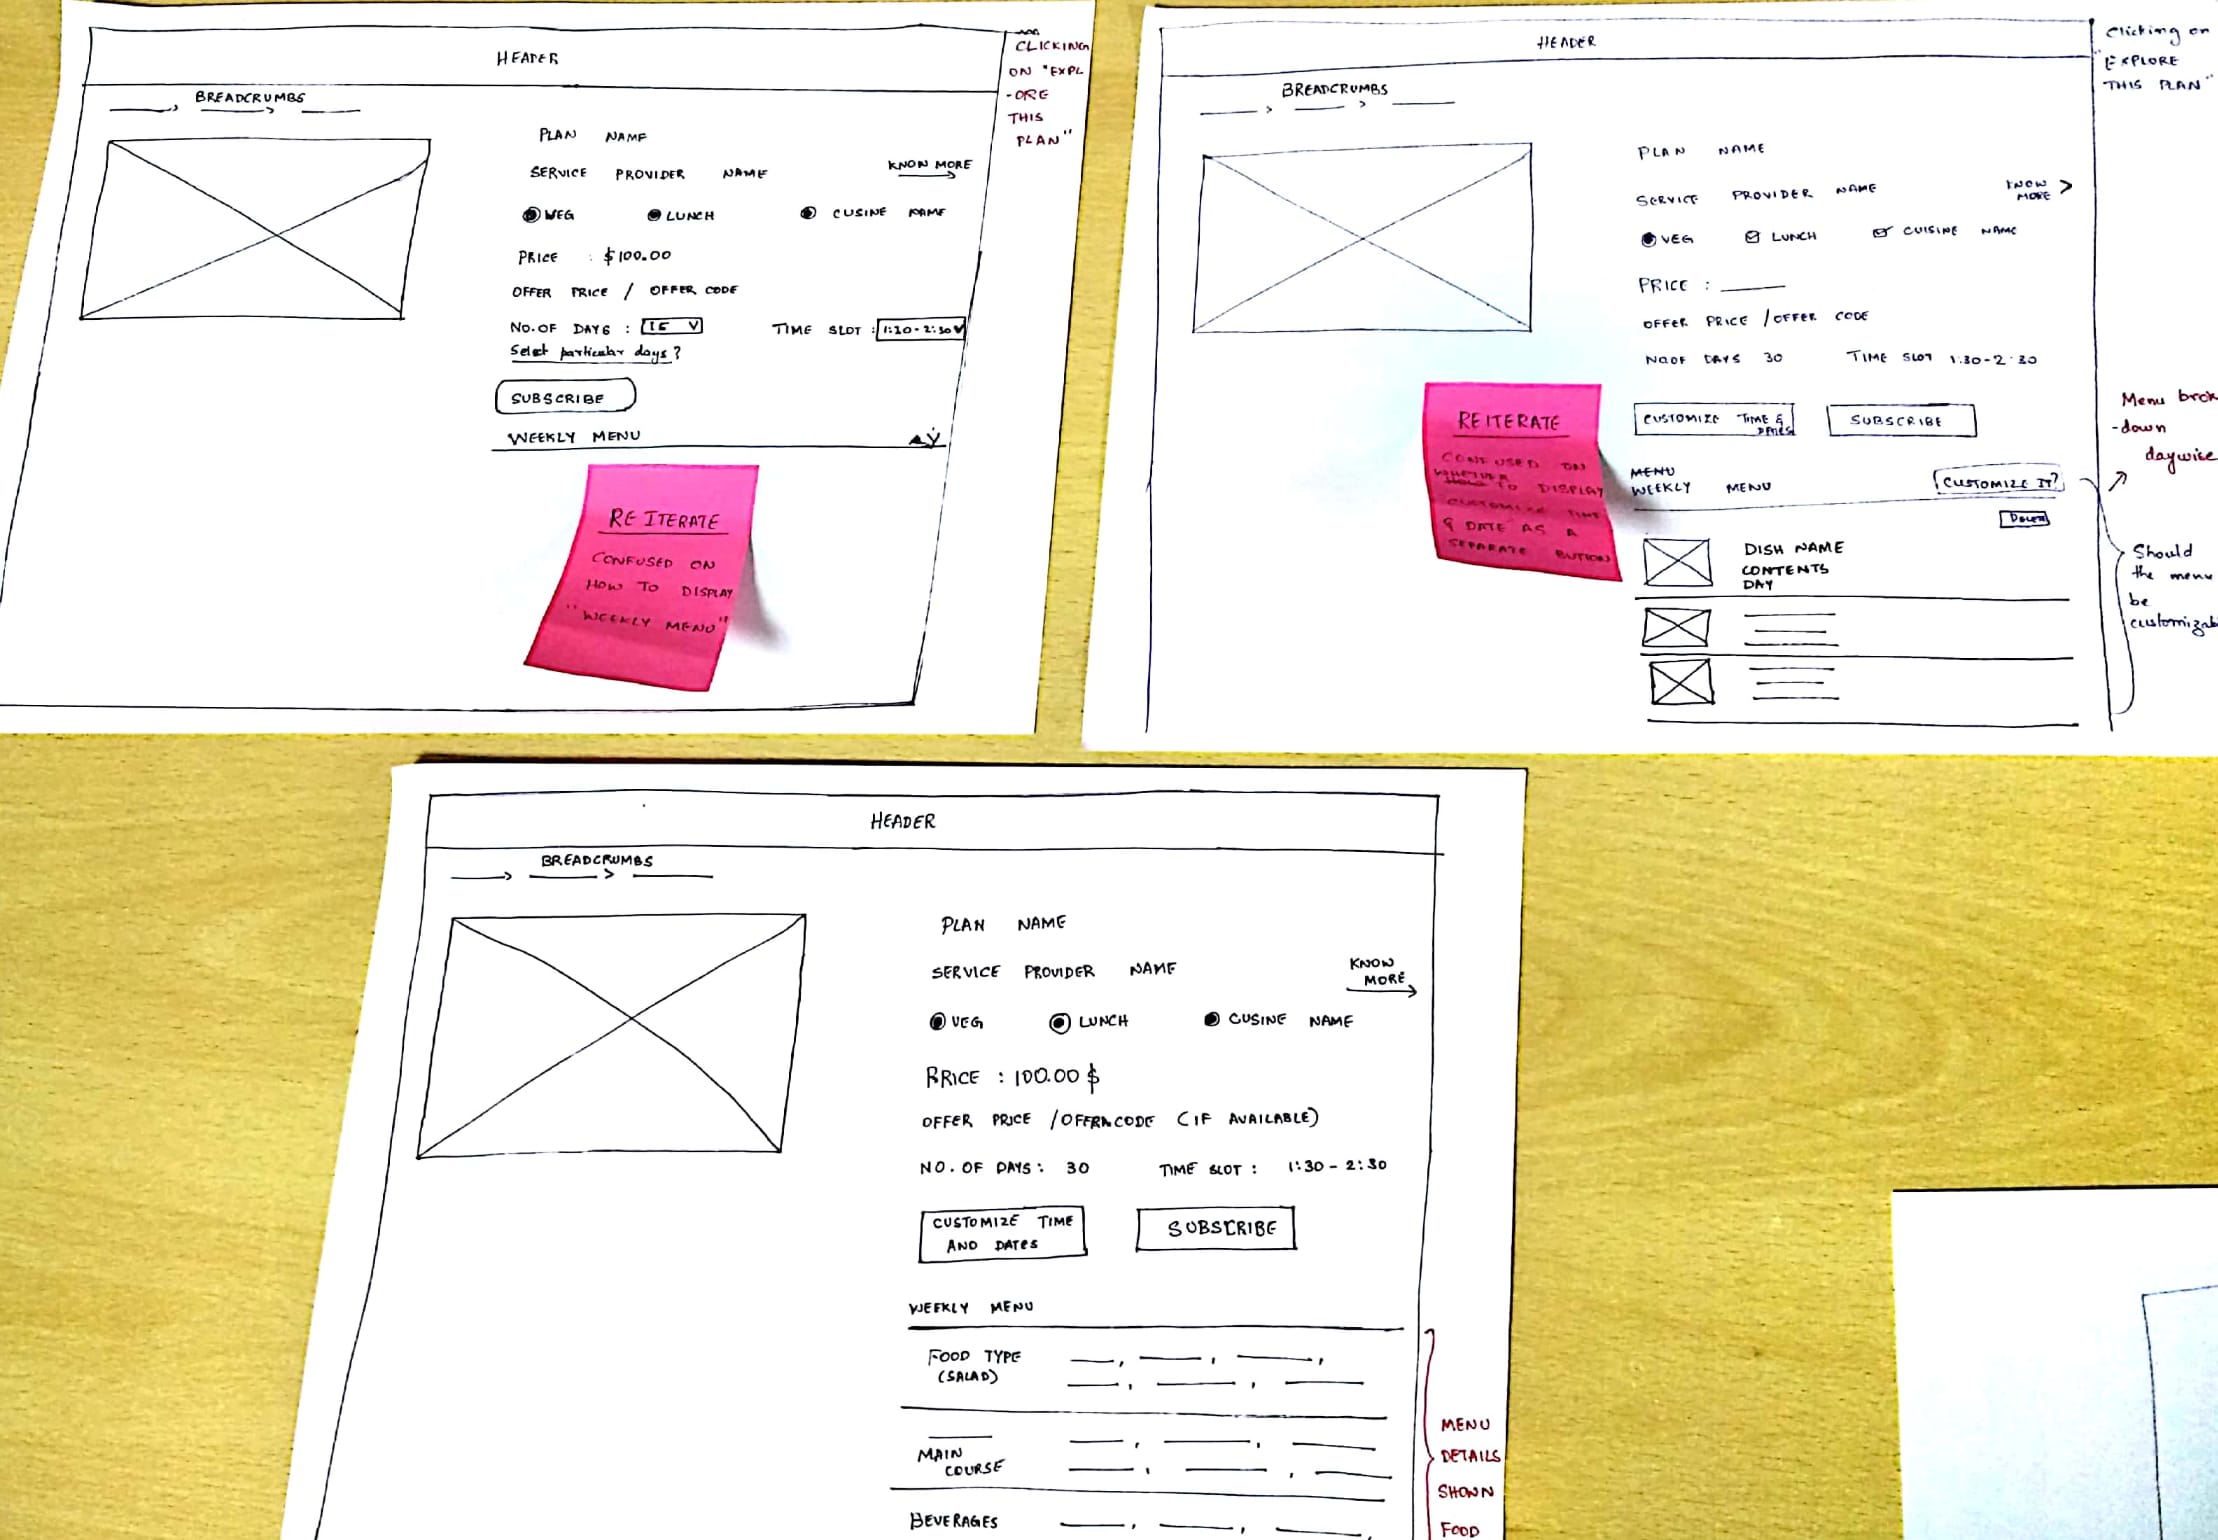 HEADER
BREADCRUMBS
PLAN NAME
SERVICE PROVIDER NAME
KNOW MORE
VEG LUNCH CUSINE NAME
PRICE : $100.00
OFFER PRICE / OFFER CODE
NO. OF DAYS : 15 V TIME SLOT : 1:30-2:30 V
Select particular days?
SUBSCRIBE
WEEKLY MENU
CLICKING
ON "EXPL
-ORE
THIS
PLAN"
RE ITERATE
CONFUSED ON
HOW TO DISPLAY
"WEEKLY MENU"
HEADER
BREADCRUMBS
PLAN NAME
SERVICE PROVIDER NAME
KNOW
MORE >
VEG LUNCH CUISINE NAME
PRICE :
OFFER PRICE / OFFER CODE
NO OF DAYS 30 TIME SLOT 1:30-2:30
CUSTOMIZE TIME &
DATES
SUBSCRIBE
MENU
WEEKLY MENU
CUSTOMIZE IT?
DISH NAME
CONTENTS
DAY
Clicking on
"EXPLORE
THIS PLAN"
Menu brek
-down
daywise
Should
the menu
be
customizab
RE ITERATE
CONFUSED ON
WHETHER
HOW TO DISPLAY
CUSTOMIZE TIME
& DATE AS A
SEPARATE BUTTON
HEADER
BREADCRUMBS
PLAN NAME
SERVICE PROVIDER NAME
KNOW
MORE
VEG LUNCH CUSINE NAME
PRICE : 100.00 $
OFFER PRICE / OFFER CODE (IF AVAILABLE)
NO. OF DAYS : 30 TIME SLOT : 1:30 - 2:30
CUSTOMIZE TIME
AND DATES
SUBSCRIBE
WEEKLY MENU
FOOD TYPE
(SALAD)
MAIN
COURSE
BEVERAGES
MENU
DETAILS
SHOWN
FOOD